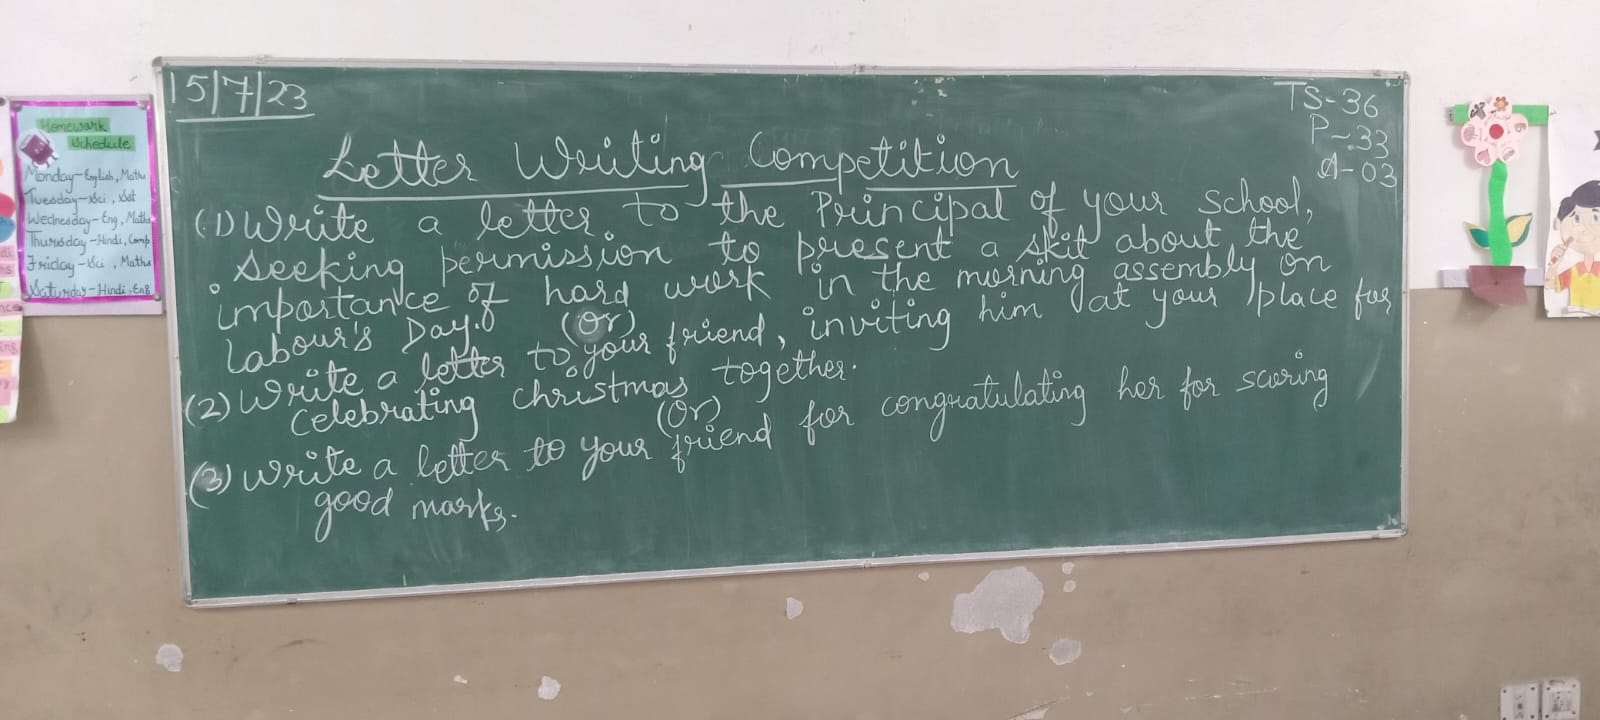 15/7/23
TS-36
P-33
A-03
Letter Writing Competition
(1) Write a letter to the Principal of your school,
seeking permission to present a skit about the
importance of hard work in the morning assembly on
Labour's Day.
(Or)
(2) Write a letter to your friend, inviting him at your place for
celebrating christmas together.
(Or)
(3) Write a letter to your friend for congratulating her for scoring
good marks.
Homework
Schedule
Monday-English, Maths
Tuesday-Sci, SSt
Wednesday-Eng, Maths
Thursday-Hindi, Comp
Friday-Sci, Maths
Saturday-Hindi, Eng